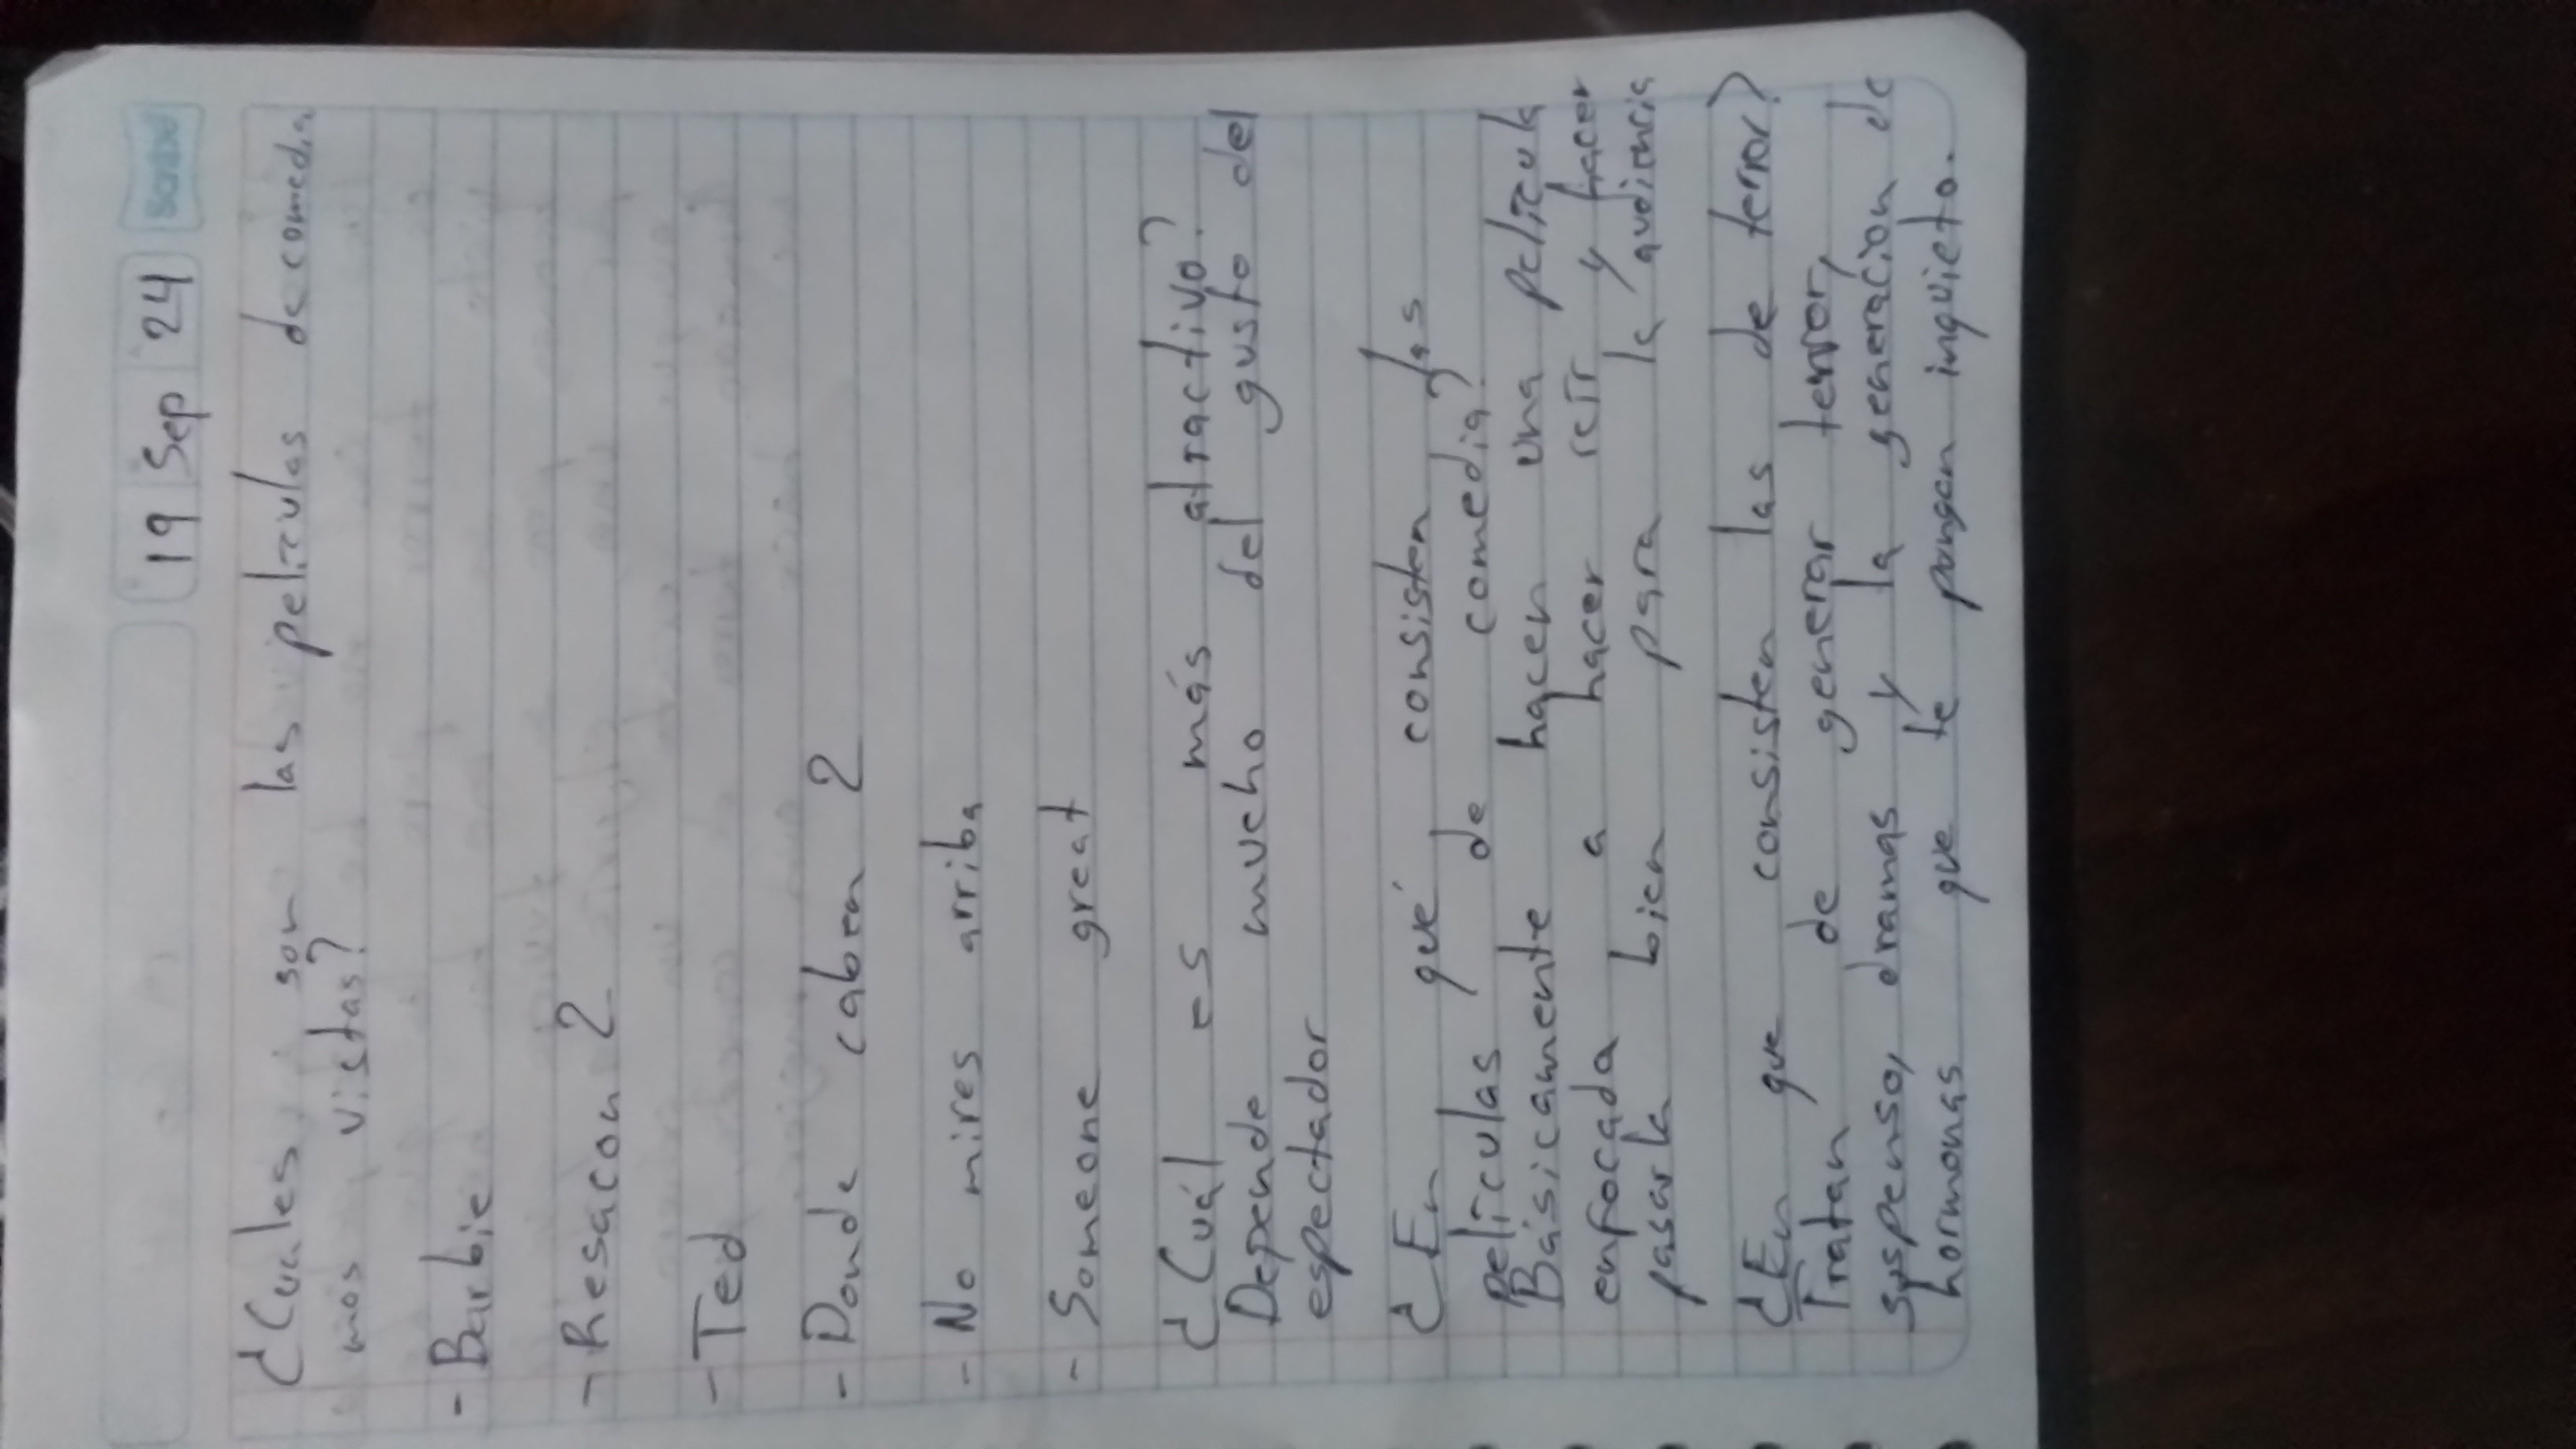 19 Sep 24 Scribe
¿Cuales son las películas de comedia
mas vistas?
- Barbie
- Resacon 2
- Ted
- Donde caben 2
- No mires arriba
- Someone great
¿Cuál es más atractivo?
Depende mucho del gusto del
espectador
¿En qué consisten las
películas de comedia?
Básicamente hacen una película
enfocada a hacer reír y hacer
pasarla bien para la audiencia
¿En que consisten las de terror?
Tratan de generar terror,
suspenso, dramas y la generacion de
hormonas que te pongan inquieto.